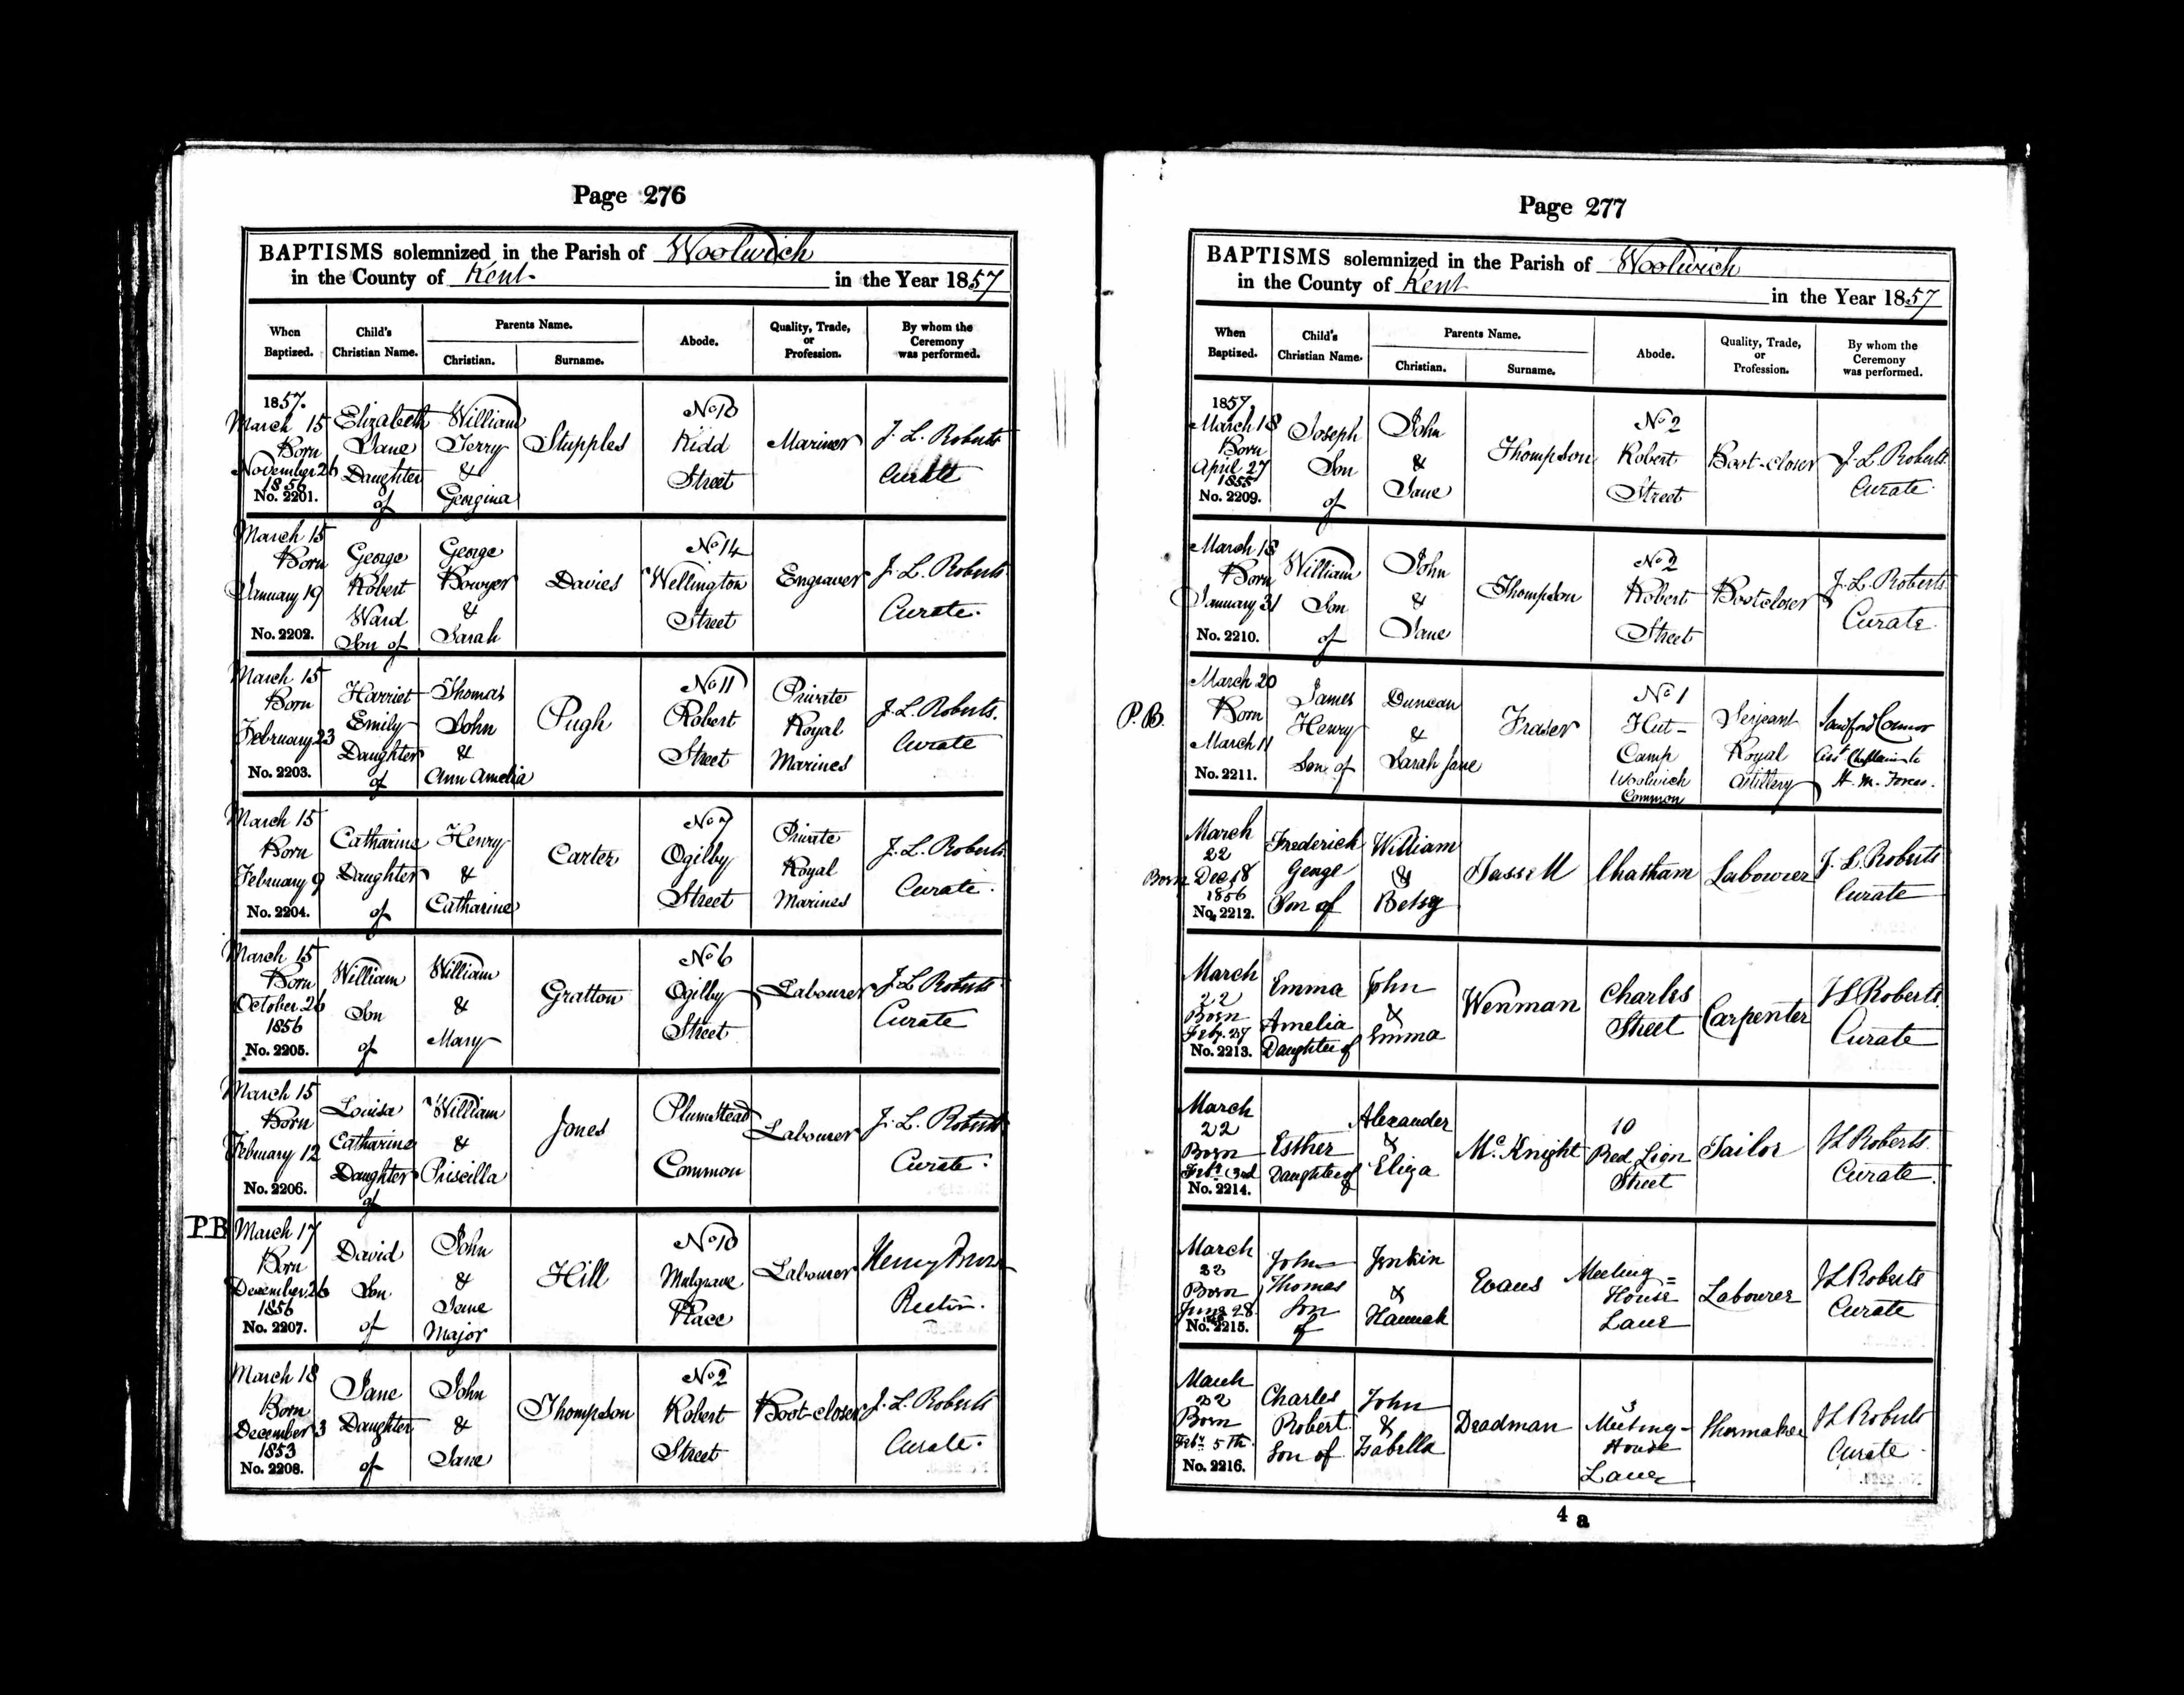 Page 276
BAPTISMS solemnized in the Parish of Woolwich
in the County of Kent in the Year 1857
When Baptized.
Child's Christian Name.
Parents Name.
Christian.
Surname.
Abode.
Quality, Trade, or Profession.
By whom the Ceremony was performed.
1857.
March 15
Born
November 26
1856
No. 2201.
Elizabeth
Jane
Daughter
of
William
Terry
&
Georgina
Stupples
No 10
Kidd
Street
Mariner
J. L. Roberts
Curate
March 15
Born
January 19
No. 2202.
George
Robert
Ward
Son of
George
Bowyer
&
Sarah
Davies
No 14
Wellington
Street
Engraver
J. L. Roberts
Curate.
March 15
Born
February 23
No. 2203.
Harriet
Emily
Daughter
of
Thomas
John
&
Ann Amelia
Pugh
No 11
Robert
Street
Private
Royal
Marines
J. L. Roberts.
Curate
March 15
Born
February 9
No. 2204.
Catharine
Daughter
of
Henry
&
Catharine
Carter
No 7
Ogilby
Street
Private
Royal
Marines
J. L. Roberts
Curate.
March 15
Born
October 26
1856
No. 2205.
William
Son
of
William
&
Mary
Gratton
No 6
Ogilby
Street
Labourer
J. L. Roberts
Curate
March 15
Born
February 12
No. 2206.
Louisa
Catharine
Daughter
of
William
&
Priscilla
Jones
Plumstead
Common
Labourer
J. L. Roberts
Curate.
P.B
March 17
Born
December 26
1856
No. 2207.
David
Son
of
John
&
Jane
Major
Hill
No 10
Mulgrave
Place
Labourer
Henry Brown
Rector.
March 18
Born
December 3
1853
No. 2208.
Jane
Daughter
of
John
&
Jane
Thompson
No 2
Robert
Street
Boot-closer
J. L. Roberts
Curate.
Page 277
BAPTISMS solemnized in the Parish of Woolwich
in the County of Kent in the Year 1857
When Baptized.
Child's Christian Name.
Parents Name.
Christian.
Surname.
Abode.
Quality, Trade, or Profession.
By whom the Ceremony was performed.
1857.
March 18
Born
April 27
1855
No. 2209.
Joseph
Son
of
John
&
Jane
Thompson
No 2
Robert
Street
Boot-closer
J. L. Roberts
Curate.
March 18
Born
January 31
No. 2210.
William
Son
of
John
&
Jane
Thompson
No 2
Robert
Street
Bootcloser
J. L. Roberts
Curate.
P.B.
March 20
Born
March 11
No. 2211.
James
Henry
Son of
Duncan
&
Sarah Jane
Fraser
No 1
Hut-
Camp
Woolwich
Common
Serjeant
Royal
Artillery
Connor
Asst Chaplain to
H. M. Forces.
March
22
Born Dec 18
1856
No. 2212.
Frederick
George
Son of
William
&
Betsy
Tassell
Chatham
Labourer
J. L. Roberts
Curate
March
22
Born
Feby. 27
No. 2213.
Emma
Amelia
Daughter of
John
&
Emma
Wenman
Charles
Street
Carpenter
J L Roberts.
Curate
March
22
Born
No. 2214.
Esther
Daughter of
Alexander
&
Eliza
Mc. Knight
10
Red Lion
Street
Tailor
J L Roberts.
Curate.
March
22
Born
June 28
No. 2215.
John
Thomas
Son
of
Jenkin
&
Hannah
Evans
Meeting=
House
Lane
Labourer
J L Roberts
Curate
March
22
Born
Feby 5th.
No. 2216.
Charles
Robert
Son of
John
&
Isabella
Deadman
3
Meeting-
House
Lane
Shoemaker
J L Roberts
Curate
4 a